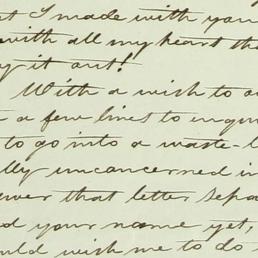 I made with you
with all my heart tha
y it out!
With a wish to a
a few lines to inqu
to go into a waste-b
lly unconcerned i
ever that letter sepa
d your name yet,
uld wish me to do